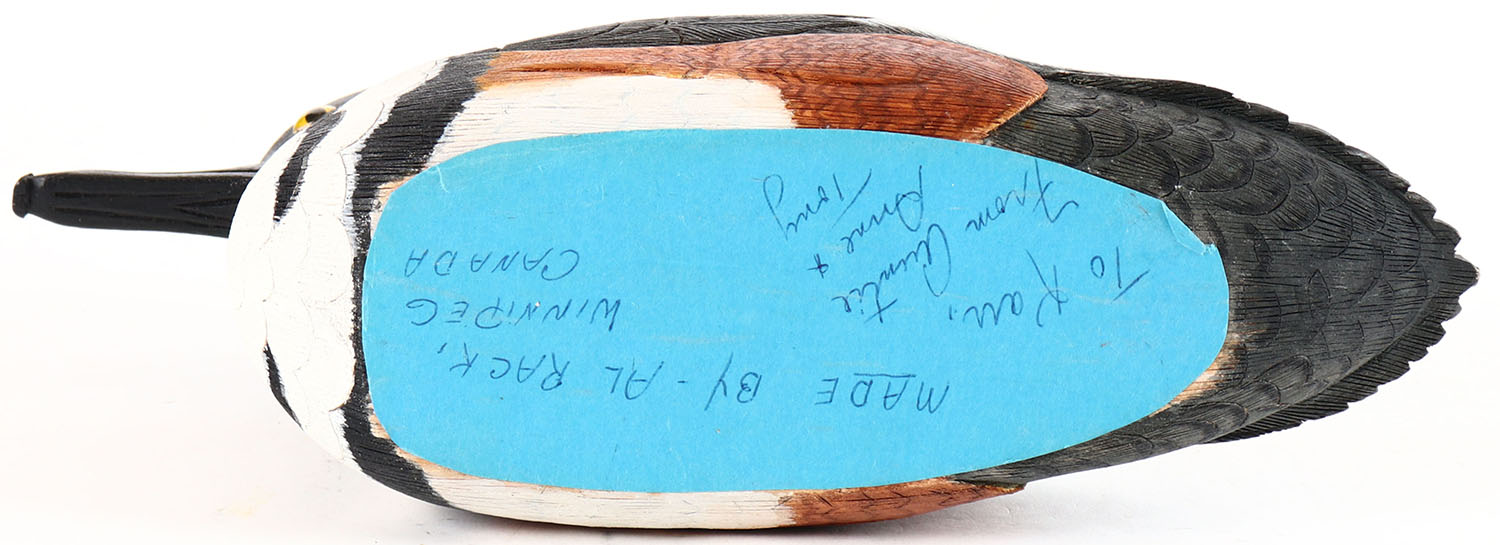 MADE BY - AL RACK,
WINNIPEG
CANADA
To
From Auntie
Anne &
Tony